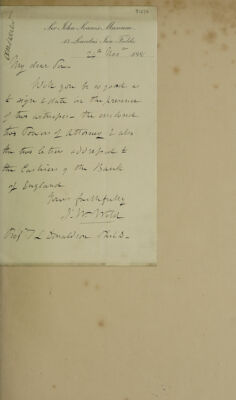 answered
Sir John Soane's Museum
13 Lincoln's Inn Fields
24th Novr 188
My dear Sir
Will you be so good as
to sign & date in the presence
of two witnesses the enclosed
two Powers of Attorney & also
the two letters addressed to
the Cashiers of the Bank
of England
Yours faithfully
J. W. Wild
Prof. T L Donaldson Ph.D.